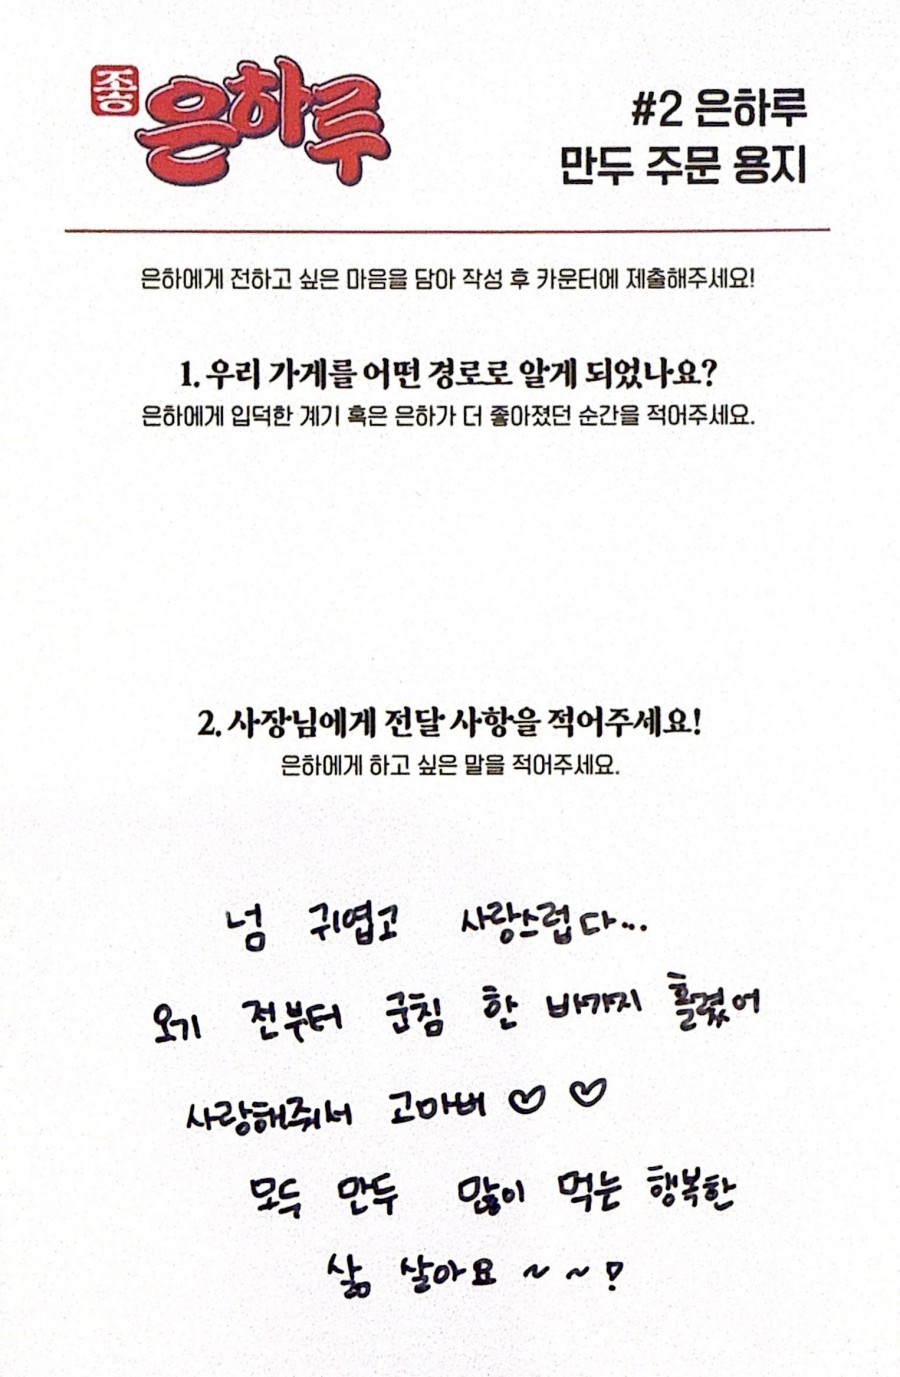 종 은하루
#2 은하루
만두 주문 용지
은하에게 전하고 싶은 마음을 담아 작성 후 카운터에 제출해주세요!
1. 우리 가게를 어떤 경로로 알게 되었나요?
은하에게 입덕한 계기 혹은 은하가 더 좋아졌던 순간을 적어주세요.
2. 사장님에게 전달 사항을 적어주세요!
은하에게 하고 싶은 말을 적어주세요.
넘 귀엽고 사랑스럽다...
오기 전부터 군침 한 바가지 흘렸어
사랑해줘서 고마버 ♡ ♡
모두 만두 많이 먹는 행복한
삶 살아요 ~ ~ !